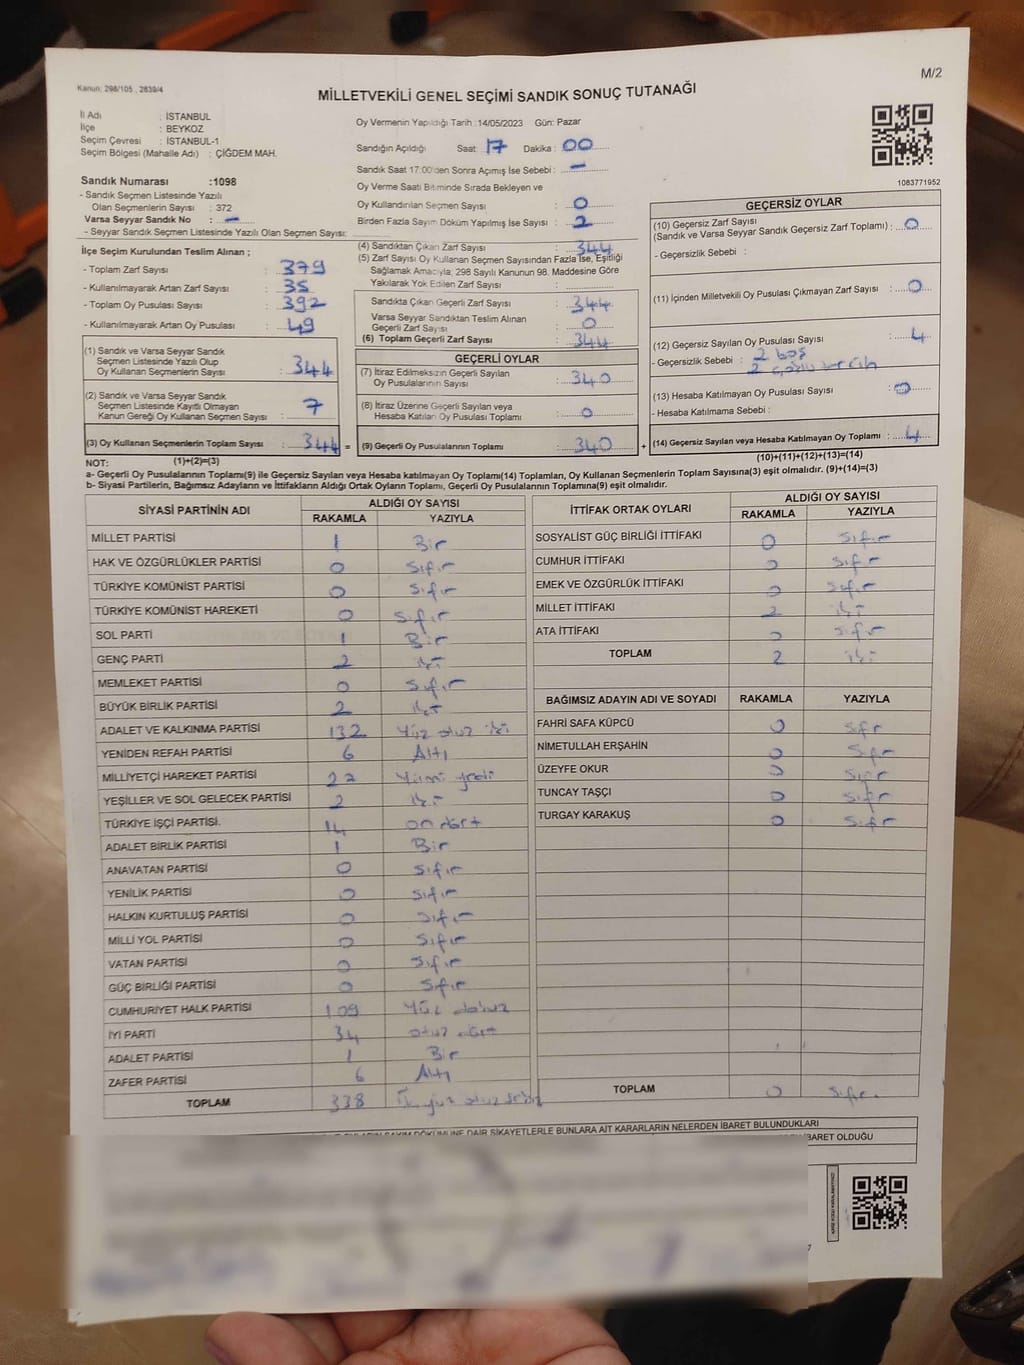 M/2
Kanun: 298/105 , 2839/4
MİLLETVEKİLİ GENEL SEÇİMİ SANDIK SONUÇ TUTANAĞI
İl Adı : İSTANBUL
İlçe : BEYKOZ
Seçim Çevresi : İSTANBUL-1
Seçim Bölgesi (Mahalle Adı) : ÇİĞDEM MAH.
Sandık Numarası :1098
- Sandık Seçmen Listesinde Yazılı
Olan Seçmenlerin Sayısı : 372
Varsa Seyyar Sandık No : -
- Seyyar Sandık Seçmen Listesinde Yazılı Olan Seçmen Sayısı:
İlçe Seçim Kurulundan Teslim Alınan ;
- Toplam Zarf Sayısı : 379
- Kullanılmayarak Artan Zarf Sayısı : 35
- Toplam Oy Pusulası Sayısı : 392
- Kullanılmayarak Artan Oy Pusulası : 49
(1) Sandık ve Varsa Seyyar Sandık
Seçmen Listesinde Yazılı Olup
Oy Kullanan Seçmenlerin Sayısı : 344
(2) Sandık ve Varsa Seyyar Sandık
Seçmen Listesinde Kayıtlı Olmayan
Kanun Gereği Oy Kullanan Seçmen Sayısı : 7
(3) Oy Kullanan Seçmenlerin Toplam Sayısı : 344 =
(1)+(2)=(3)
Oy Vermenin Yapıldığı Tarih :14/05/2023 Gün: Pazar
Sandığın Açıldığı Saat: 17 Dakika : 00
Sandık Saat 17:00'den Sonra Açımış İse Sebebi : -
Oy Verme Saati Bitiminde Sırada Bekleyen ve
Oy Kullandırılan Seçmen Sayısı : 0
Birden Fazla Sayım Döküm Yapılmış İse Sayısı : 2
(4) Sandıktan Çıkan Zarf Sayısı : 344
(5) Zarf Sayısı Oy Kullanan Seçmen Sayısından Fazla İse, Eşitliği
Sağlamak Amacıyla, 298 Sayılı Kanunun 98. Maddesine Göre
Yakılarak Yok Edilen Zarf Sayısı :
Sandıkta Çıkan Geçerli Zarf Sayısı : 344
Varsa Seyyar Sandıktan Teslim Alınan
Geçerli Zarf Sayısı : 0
(6) Toplam Geçerli Zarf Sayısı : 344
GEÇERLİ OYLAR
(7) İtiraz Edilmeksizin Geçerli Sayılan
Oy Pusulalarının Sayısı : 340
(8) İtiraz Üzerine Geçerli Sayılan veya
Hesaba Katılan Oy Pusulası Toplamı : 0
(9) Geçerli Oy Pusulalarının Toplamı : 340 +
1083771952
GEÇERSİZ OYLAR
(10) Geçersiz Zarf Sayısı
(Sandık ve Varsa Seyyar Sandık Geçersiz Zarf Toplamı) : 0
- Geçersizlik Sebebi :
(11) İçinden Milletvekili Oy Pusulası Çıkmayan Zarf Sayısı : 0
(12) Geçersiz Sayılan Oy Pusulası Sayısı : 4
- Geçersizlik Sebebi : 2 boş
2
(13) Hesaba Katılmayan Oy Pusulası Sayısı : 0
- Hesaba Katılmama Sebebi :
(14) Geçersiz Sayılan veya Hesaba Katılmayan Oy Toplamı : 4
(10)+(11)+(12)+(13)=(14)
NOT:
a- Geçerli Oy Pusulalarının Toplamı(9) ile Geçersiz Sayılan veya Hesaba katılmayan Oy Toplamı(14) Toplamları, Oy Kullanan Seçmenlerin Toplam Sayısına(3) eşit olmalıdır. (9)+(14)=(3)
b- Siyasi Partilerin, Bağımsız Adayların ve İttifakların Aldığı Ortak Oyların Toplamı, Geçerli Oy Pusulalarının Toplamına(9) eşit olmalıdır.
SİYASİ PARTİNİN ADI ALDIĞI OY SAYISI
RAKAMLA YAZIYLA
MİLLET PARTİSİ 1 Bir
HAK VE ÖZGÜRLÜKLER PARTİSİ 0 Sıfır
TÜRKİYE KOMÜNİST PARTİSİ 0 Sıfır
TÜRKİYE KOMÜNİST HAREKETİ 0 Sıfır
SOL PARTİ 1 Bir
GENÇ PARTİ 2 iki
MEMLEKET PARTİSİ 0 Sıfır
BÜYÜK BİRLİK PARTİSİ 2 iki
ADALET VE KALKINMA PARTİSİ 132 Yüz otuz iki
YENİDEN REFAH PARTİSİ 6 Altı
MİLLİYETÇİ HAREKET PARTİSİ 27 Yirmi yedi
YEŞİLLER VE SOL GELECEK PARTİSİ 2 iki
TÜRKİYE İŞÇİ PARTİSİ. 14 on dört
ADALET BİRLİK PARTİSİ 1 Bir
ANAVATAN PARTİSİ 0 Sıfır
YENİLİK PARTİSİ 0 Sıfır
HALKIN KURTULUŞ PARTİSİ 0 Sıfır
MİLLİ YOL PARTİSİ 0 Sıfır
VATAN PARTİSİ 0 Sıfır
GÜÇ BİRLİĞİ PARTİSİ 0 Sıfır
CUMHURİYET HALK PARTİSİ 109 Yüz dokuz
İYİ PARTİ 34 otuz dört
ADALET PARTİSİ 1 Bir
ZAFER PARTİSİ 6 Altı
TOPLAM 338 Üçyüz otuz sekiz
İTTİFAK ORTAK OYLARI ALDIĞI OY SAYISI
RAKAMLA YAZIYLA
SOSYALİST GÜÇ BİRLİĞİ İTTİFAKI 0 Sıfır
CUMHUR İTTİFAKI 0 Sıfır
EMEK VE ÖZGÜRLÜK İTTİFAKI 0 Sıfır
MİLLET İTTİFAKI 2 iki
ATA İTTİFAKI 0 Sıfır
TOPLAM 2 iki
BAĞIMSIZ ADAYIN ADI VE SOYADI RAKAMLA YAZIYLA
FAHRİ SAFA KÜPCÜ 0 Sıfır
NİMETULLAH ERŞAHİN 0 Sıfır
ÜZEYFE OKUR 0 Sıfır
TUNCAY TAŞÇI 0 Sıfır
TURGAY KARAKUŞ 0 Sıfır
TOPLAM 0 Sıfır.
SAYIM DÖKÜMÜNE DAİR ŞİKAYETLERLE BUNLARA AİT KARARLARIN NELERDEN İBARET BULUNDUKLARI
İBARET OLDUĞU